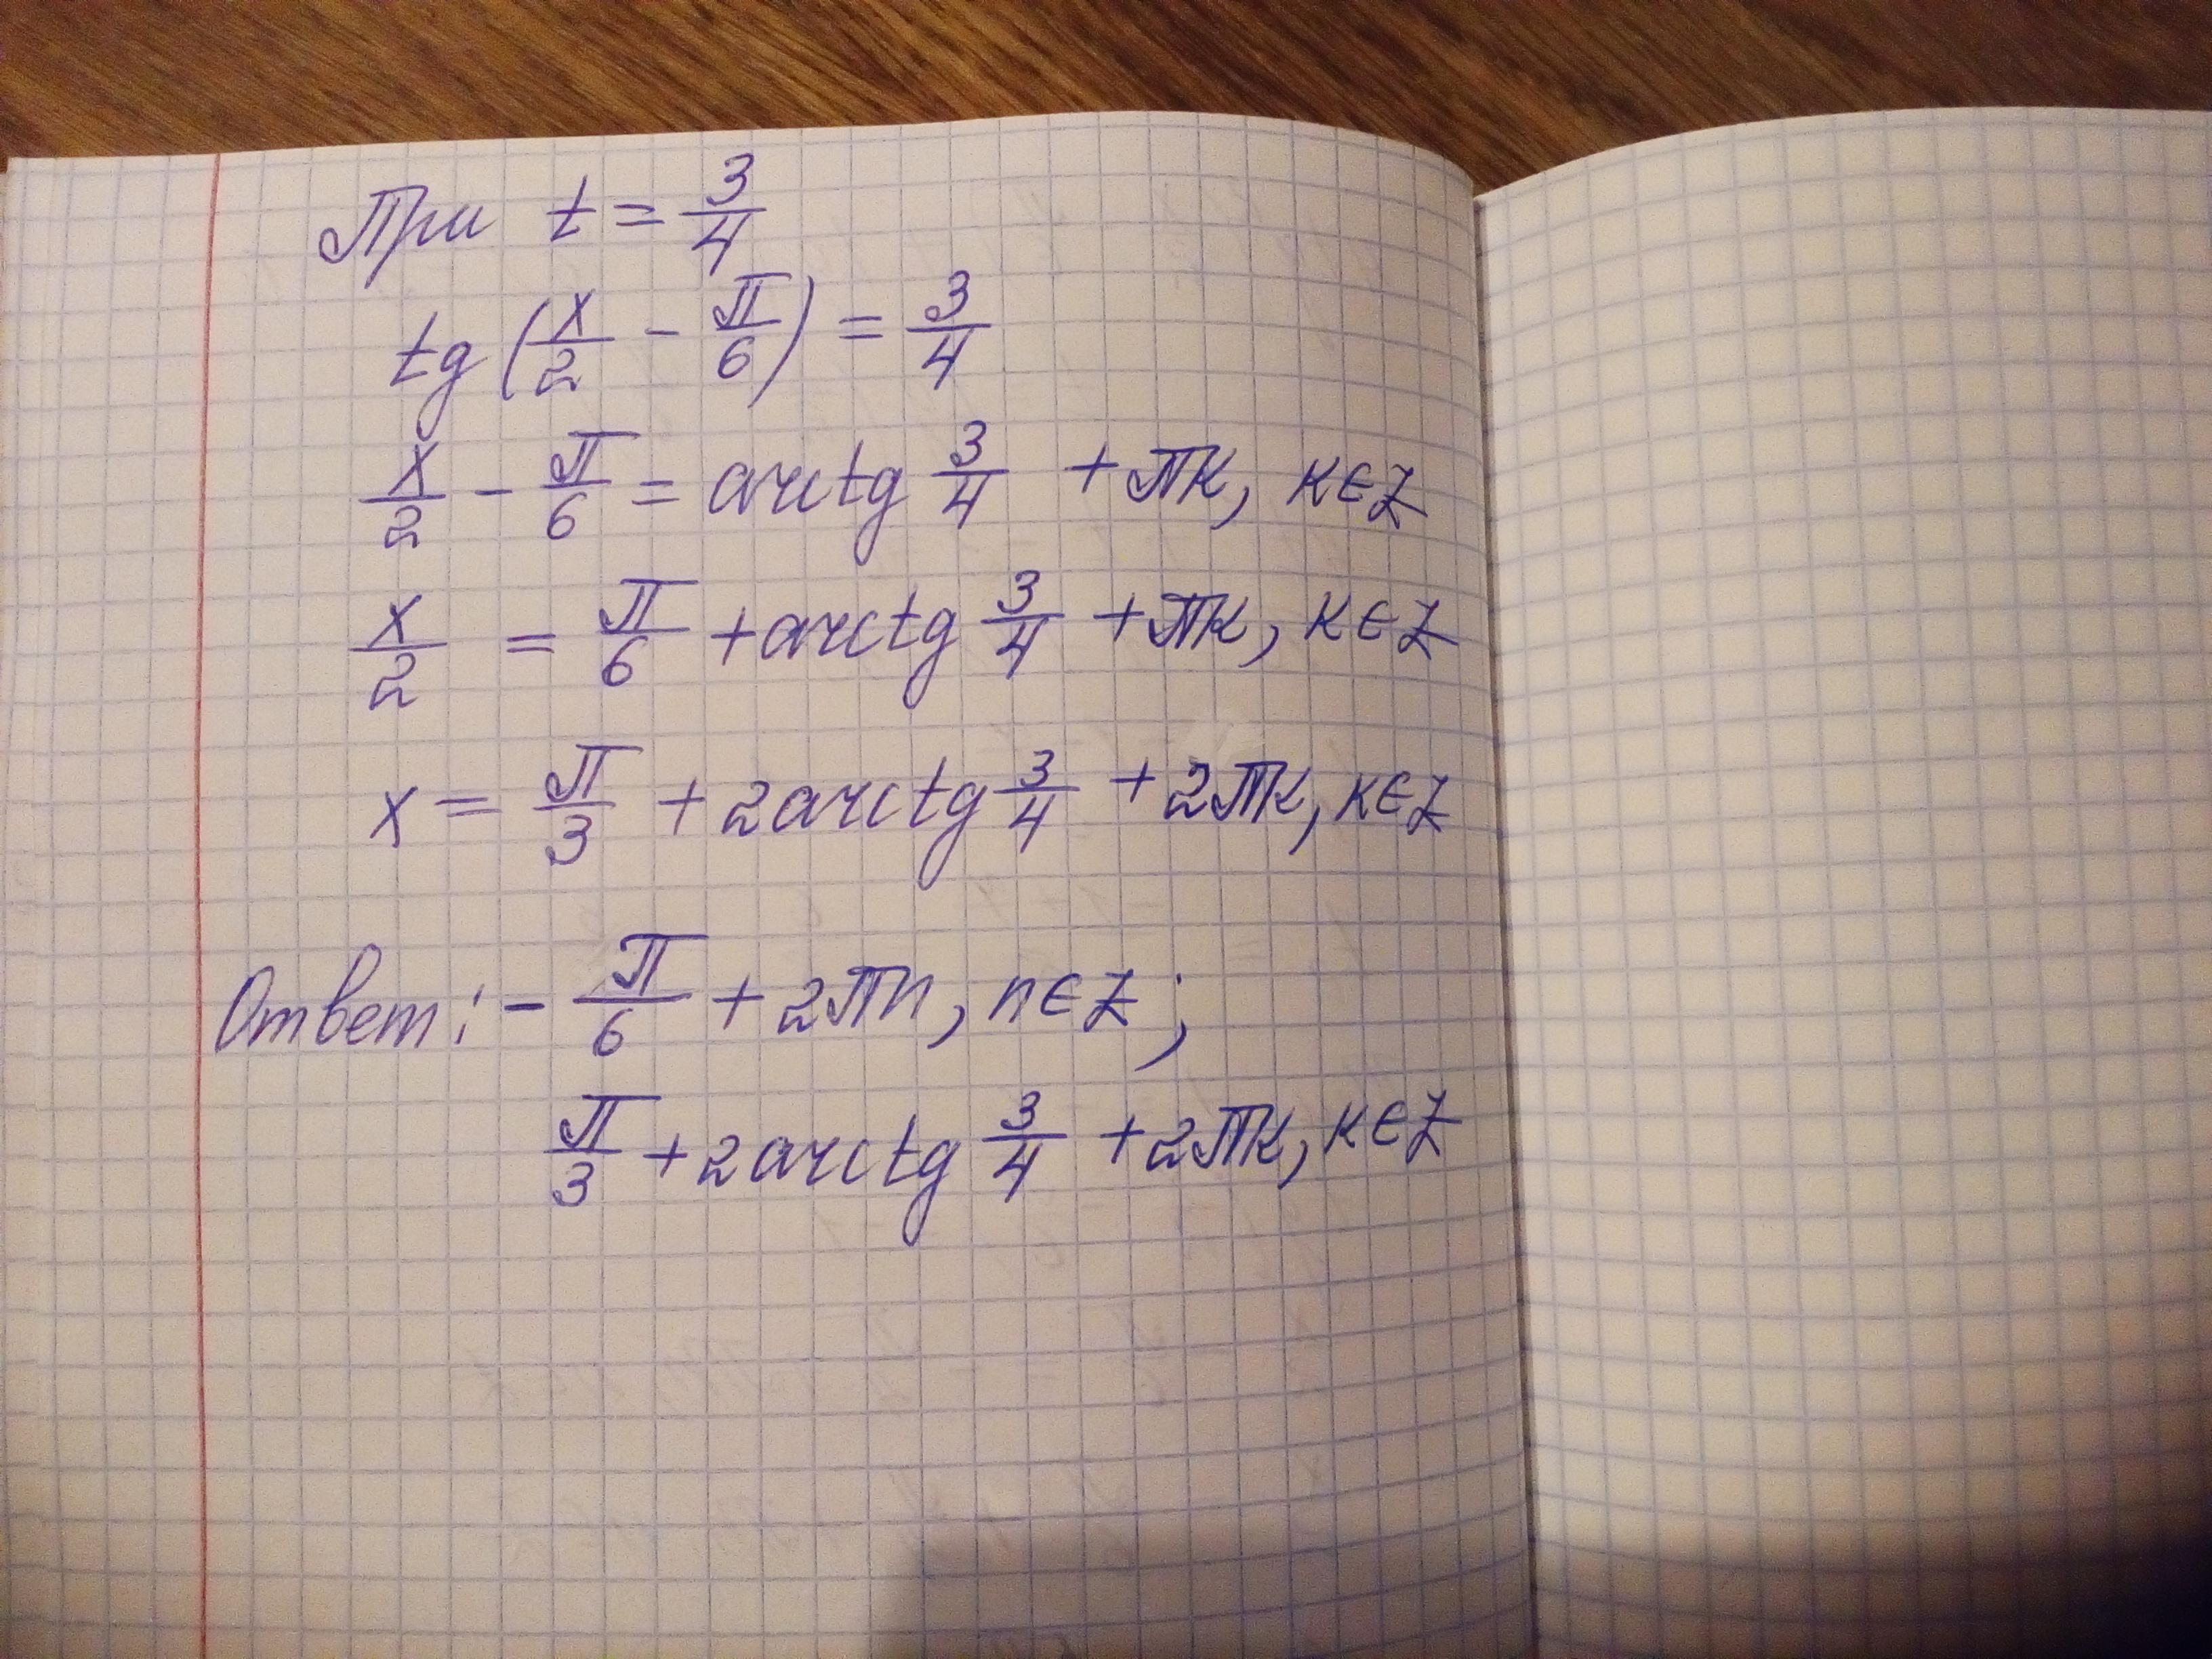 При t = 3/4
tg (x/2 - π/6) = 3/4
x/2 - π/6 = arctg 3/4 + πк, к∈Z
x/2 = π/6 + arctg 3/4 + πк, к∈Z
x = π/3 + 2arctg 3/4 + 2πк, к∈Z
Ответ: - π/6 + 2πn, n∈Z;
π/3 + 2arctg 3/4 + 2πк, к∈Z